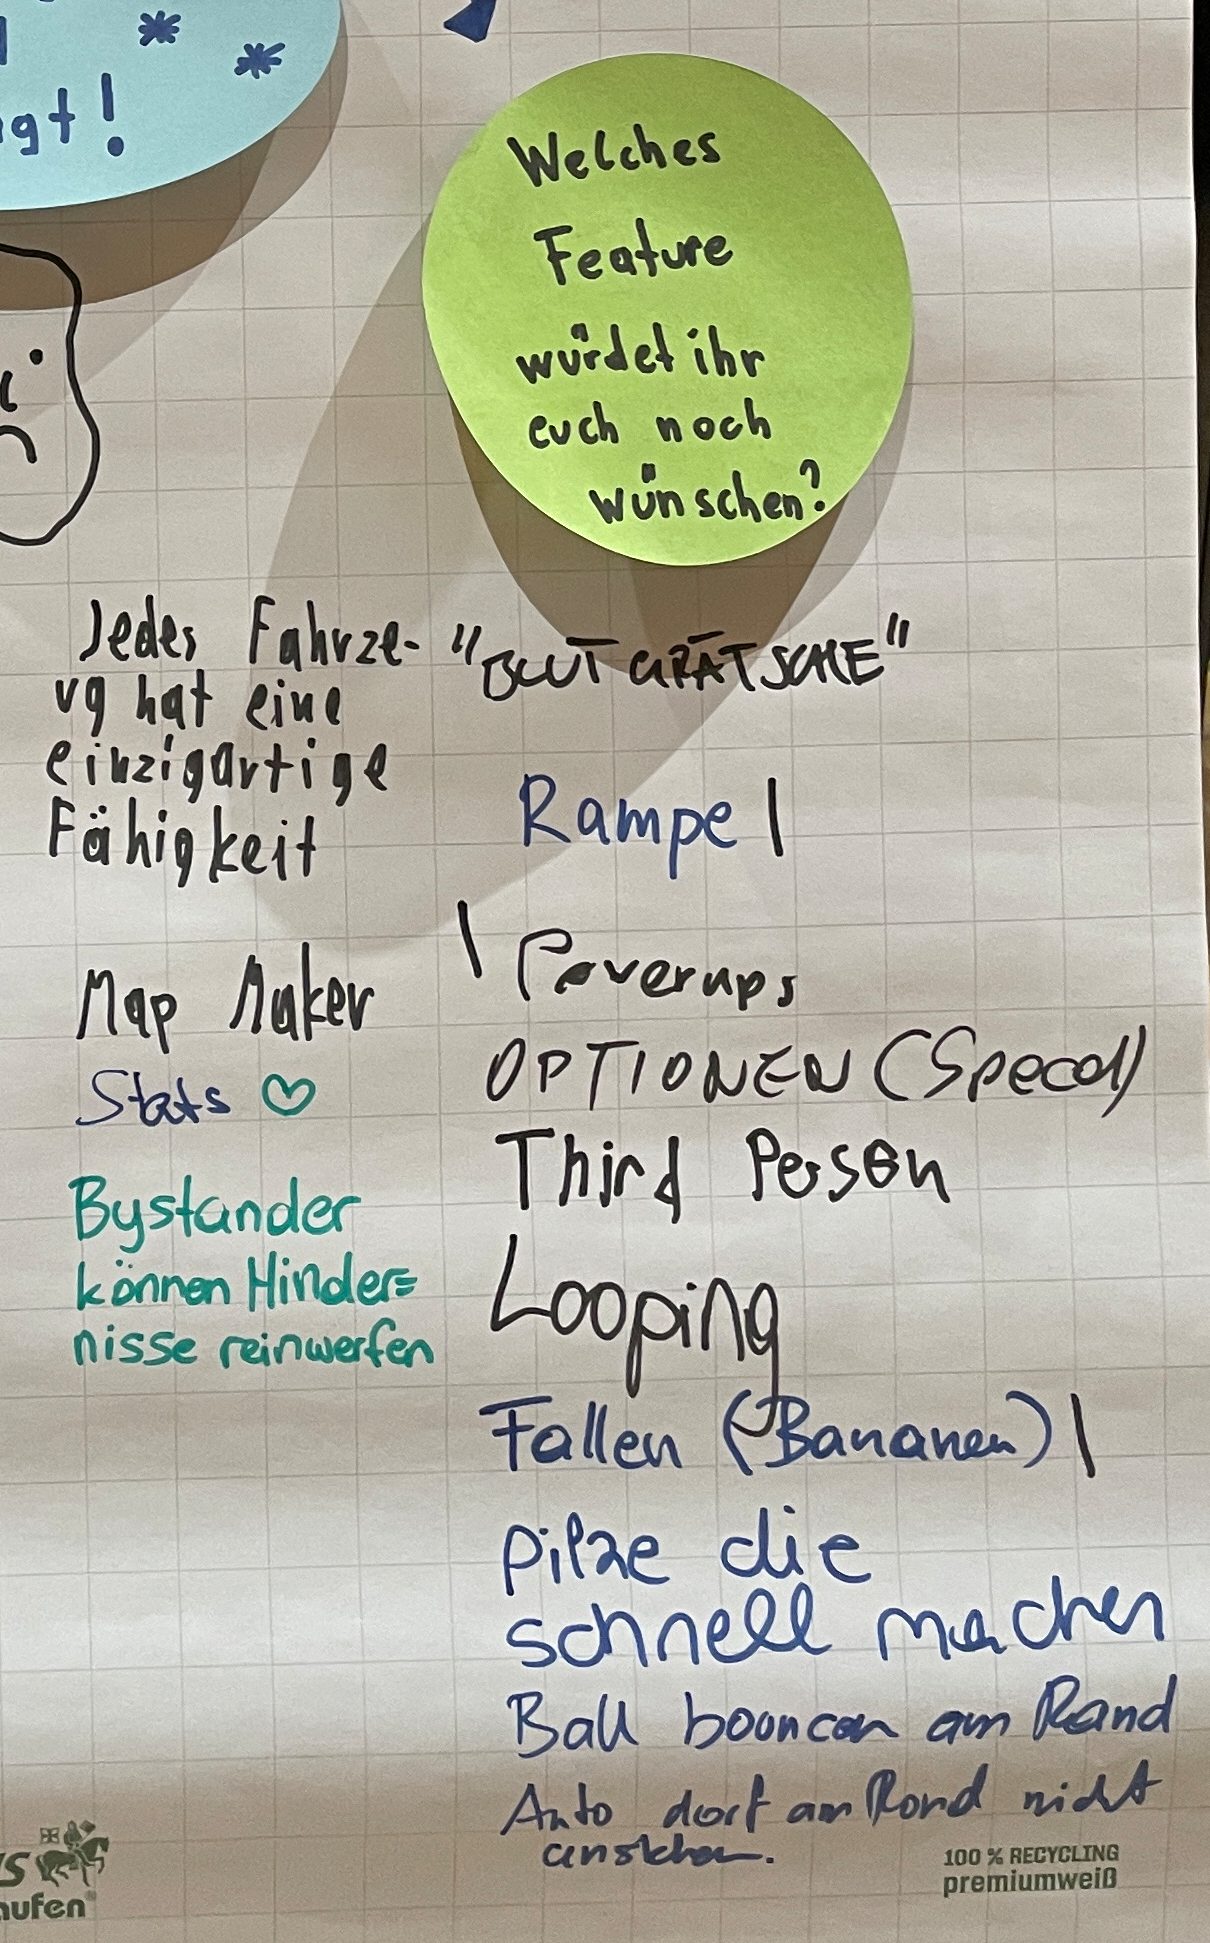 gt!
Welches
Feature
würdet ihr
euch noch
wünschen?
Jedes Fahrze-
ug hat eine
einzigartige
Fähigkeit
Map Maker
Stats ♡
Bystander
können Hinder=
nisse reinwerfen
"BLUTGRÄTSCHE"
Rampe |
| Powerups
OPTIONEN (Speed)
Third Person
Looping
Fallen (Bananen) |
Pilze die
schnell machen
Ball bouncen am Rand
Auto darf am Rand nicht
anstehen.
aufen
100 % RECYCLING
premiumweiß